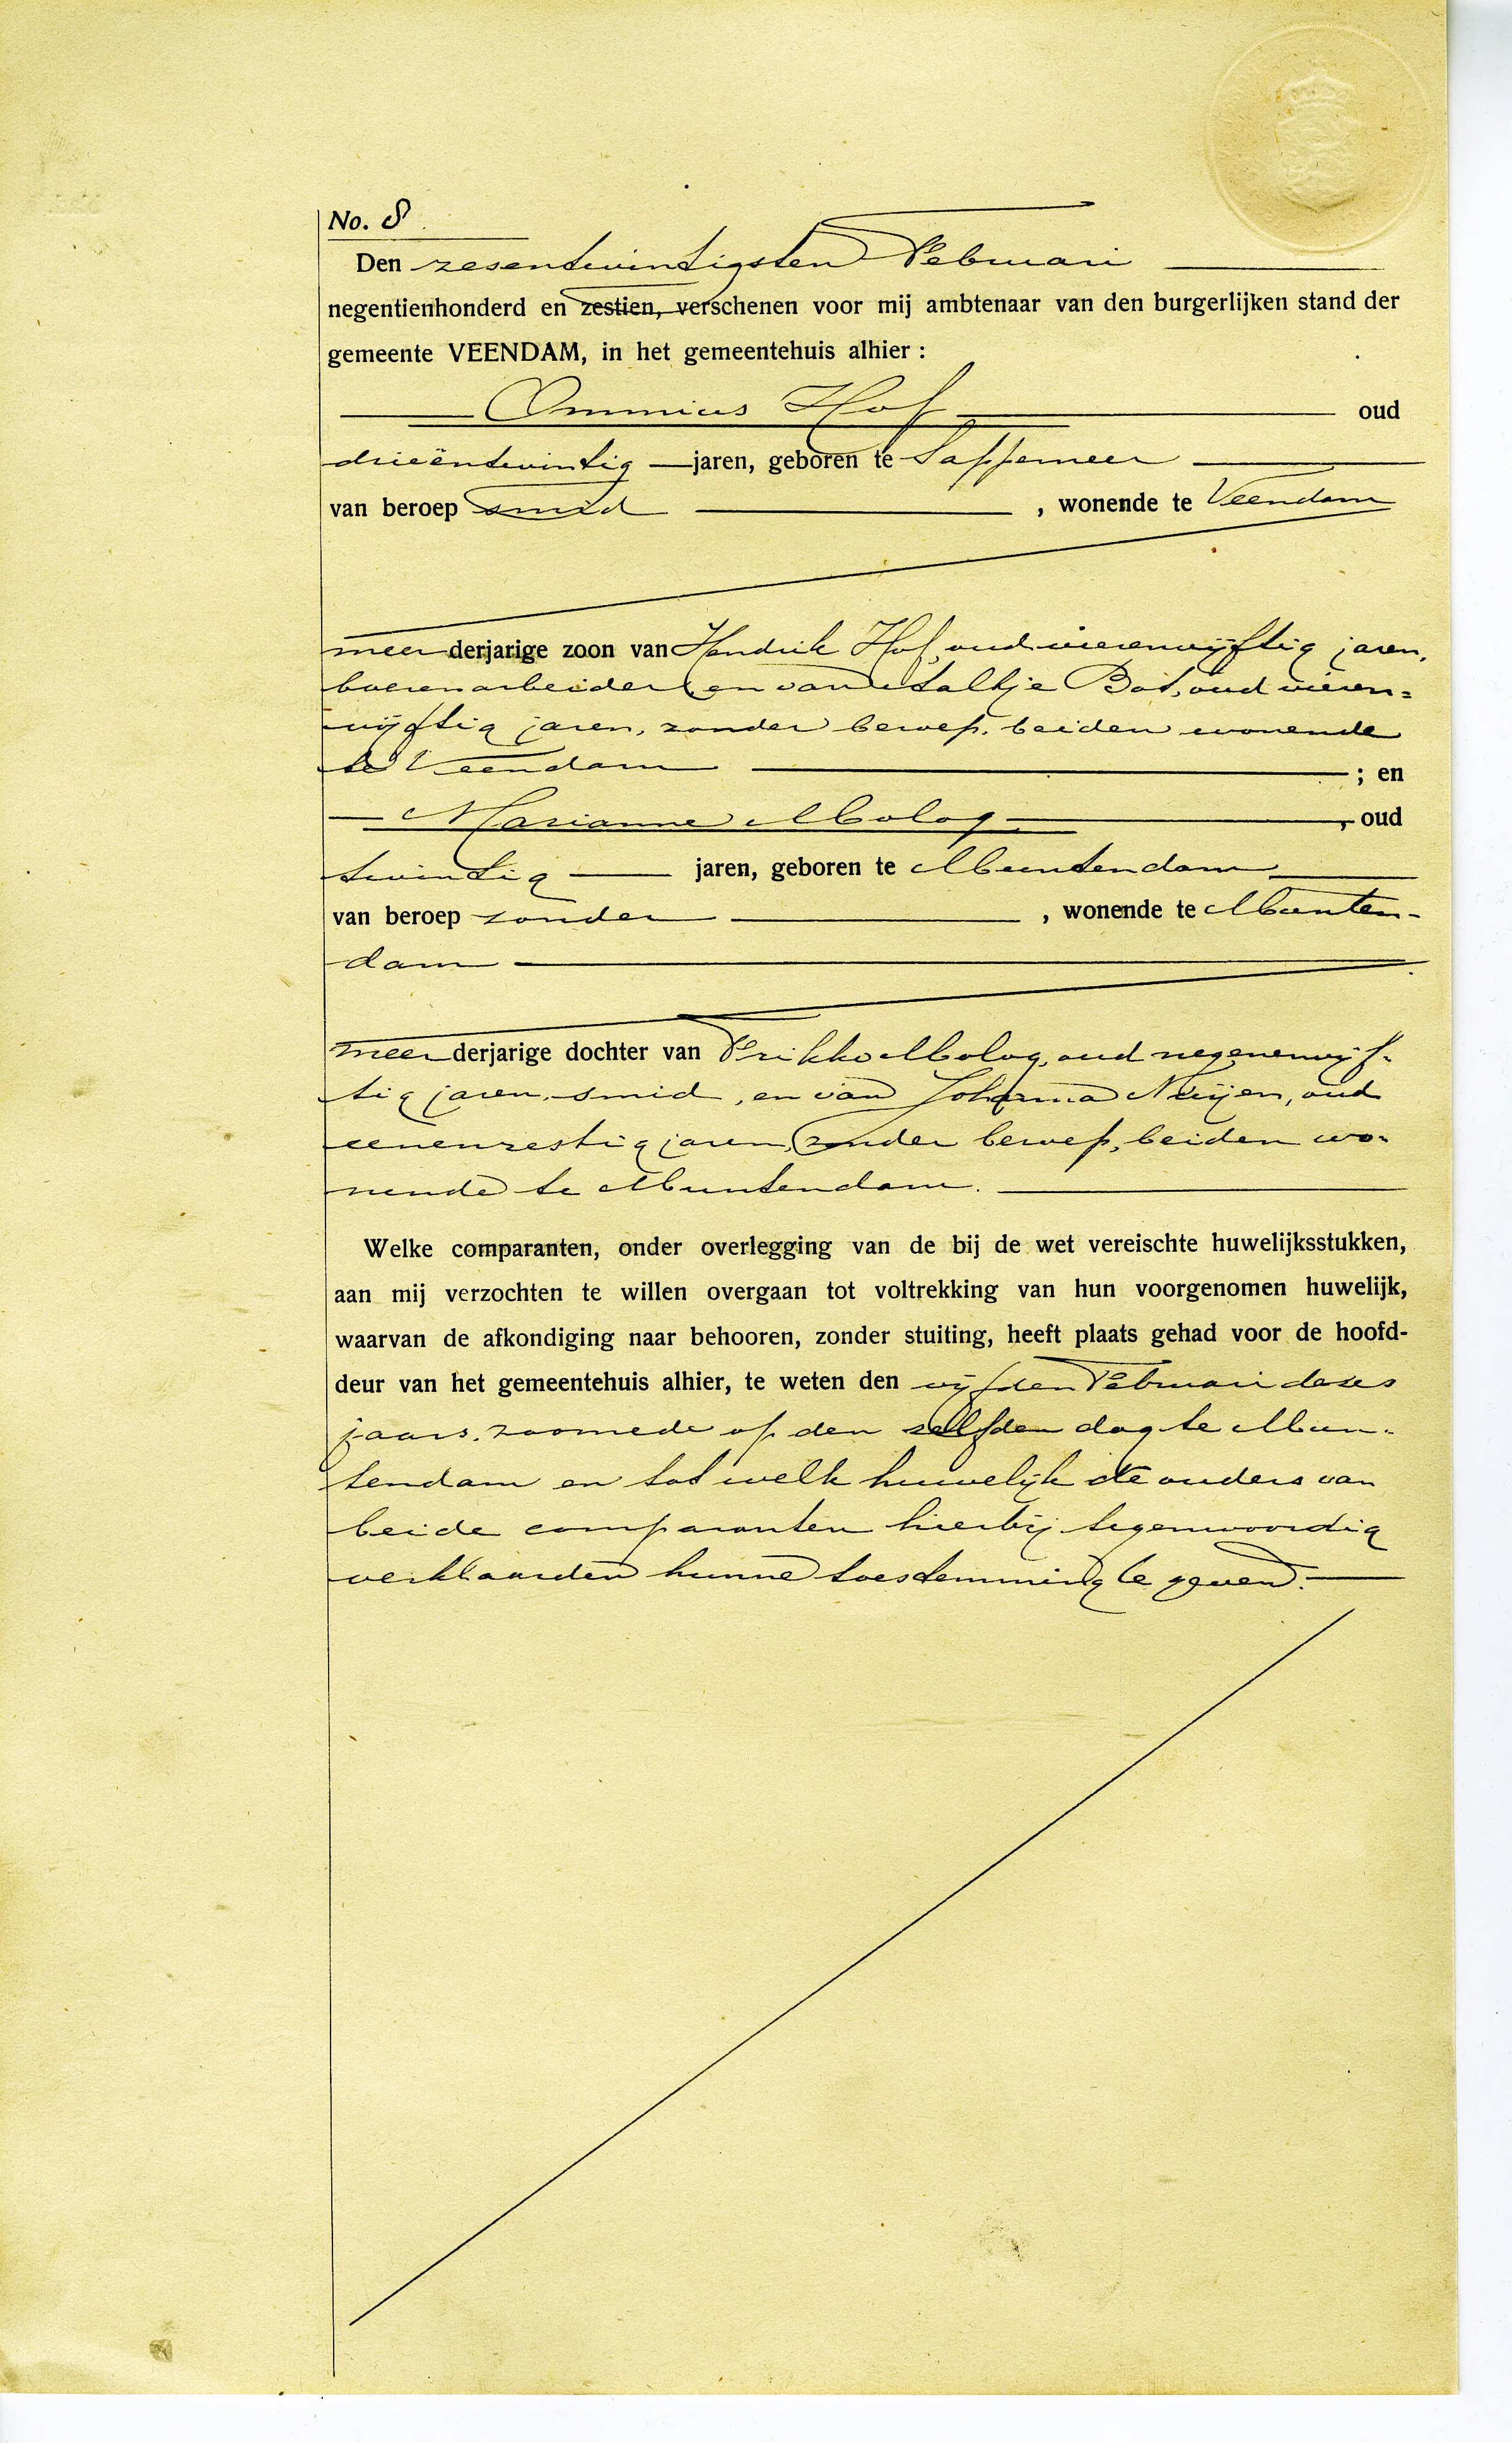 No. 8
Den zesentwintigsten Februari
negentienhonderd en zestien, verschenen voor mij ambtenaar van den burgerlijken stand der
gemeente VEENDAM, in het gemeentehuis alhier :
Ommius Hof oud
drieëntwintig jaren, geboren te Sappemeer
van beroep smid , wonende te Veendam
meerderjarige zoon van Hendrik Hof, oud vierenvijftig jaren,
boerenarbeider en van Aaltje Bot, oud vieren=
vijftig jaren, zonder beroep, beiden wonende
te Veendam ; en
Marianne Molog , oud
twintig jaren, geboren te Muntendam
van beroep zonder , wonende te Munten-
dam
meerderjarige dochter van Frikko Molog, oud negenenvijf-
tig jaren, smid, en van Johanna Nuijen, oud
eenenzestig jaren, zonder beroep, beiden wo-
nende te Muntendam.
Welke comparanten, onder overlegging van de bij de wet vereischte huwelijksstukken,
aan mij verzochten te willen overgaan tot voltrekking van hun voorgenomen huwelijk,
waarvan de afkondiging naar behooren, zonder stuiting, heeft plaats gehad voor de hoofd-
deur van het gemeentehuis alhier, te weten den vijfden Februari dezes
jaars, zoomede op den zelfden dag te Mun-
tendam en tot welk huwelijk de ouders van
beide comparanten hierbij tegenwoordig
verklaarden hunne toestemming te geven.